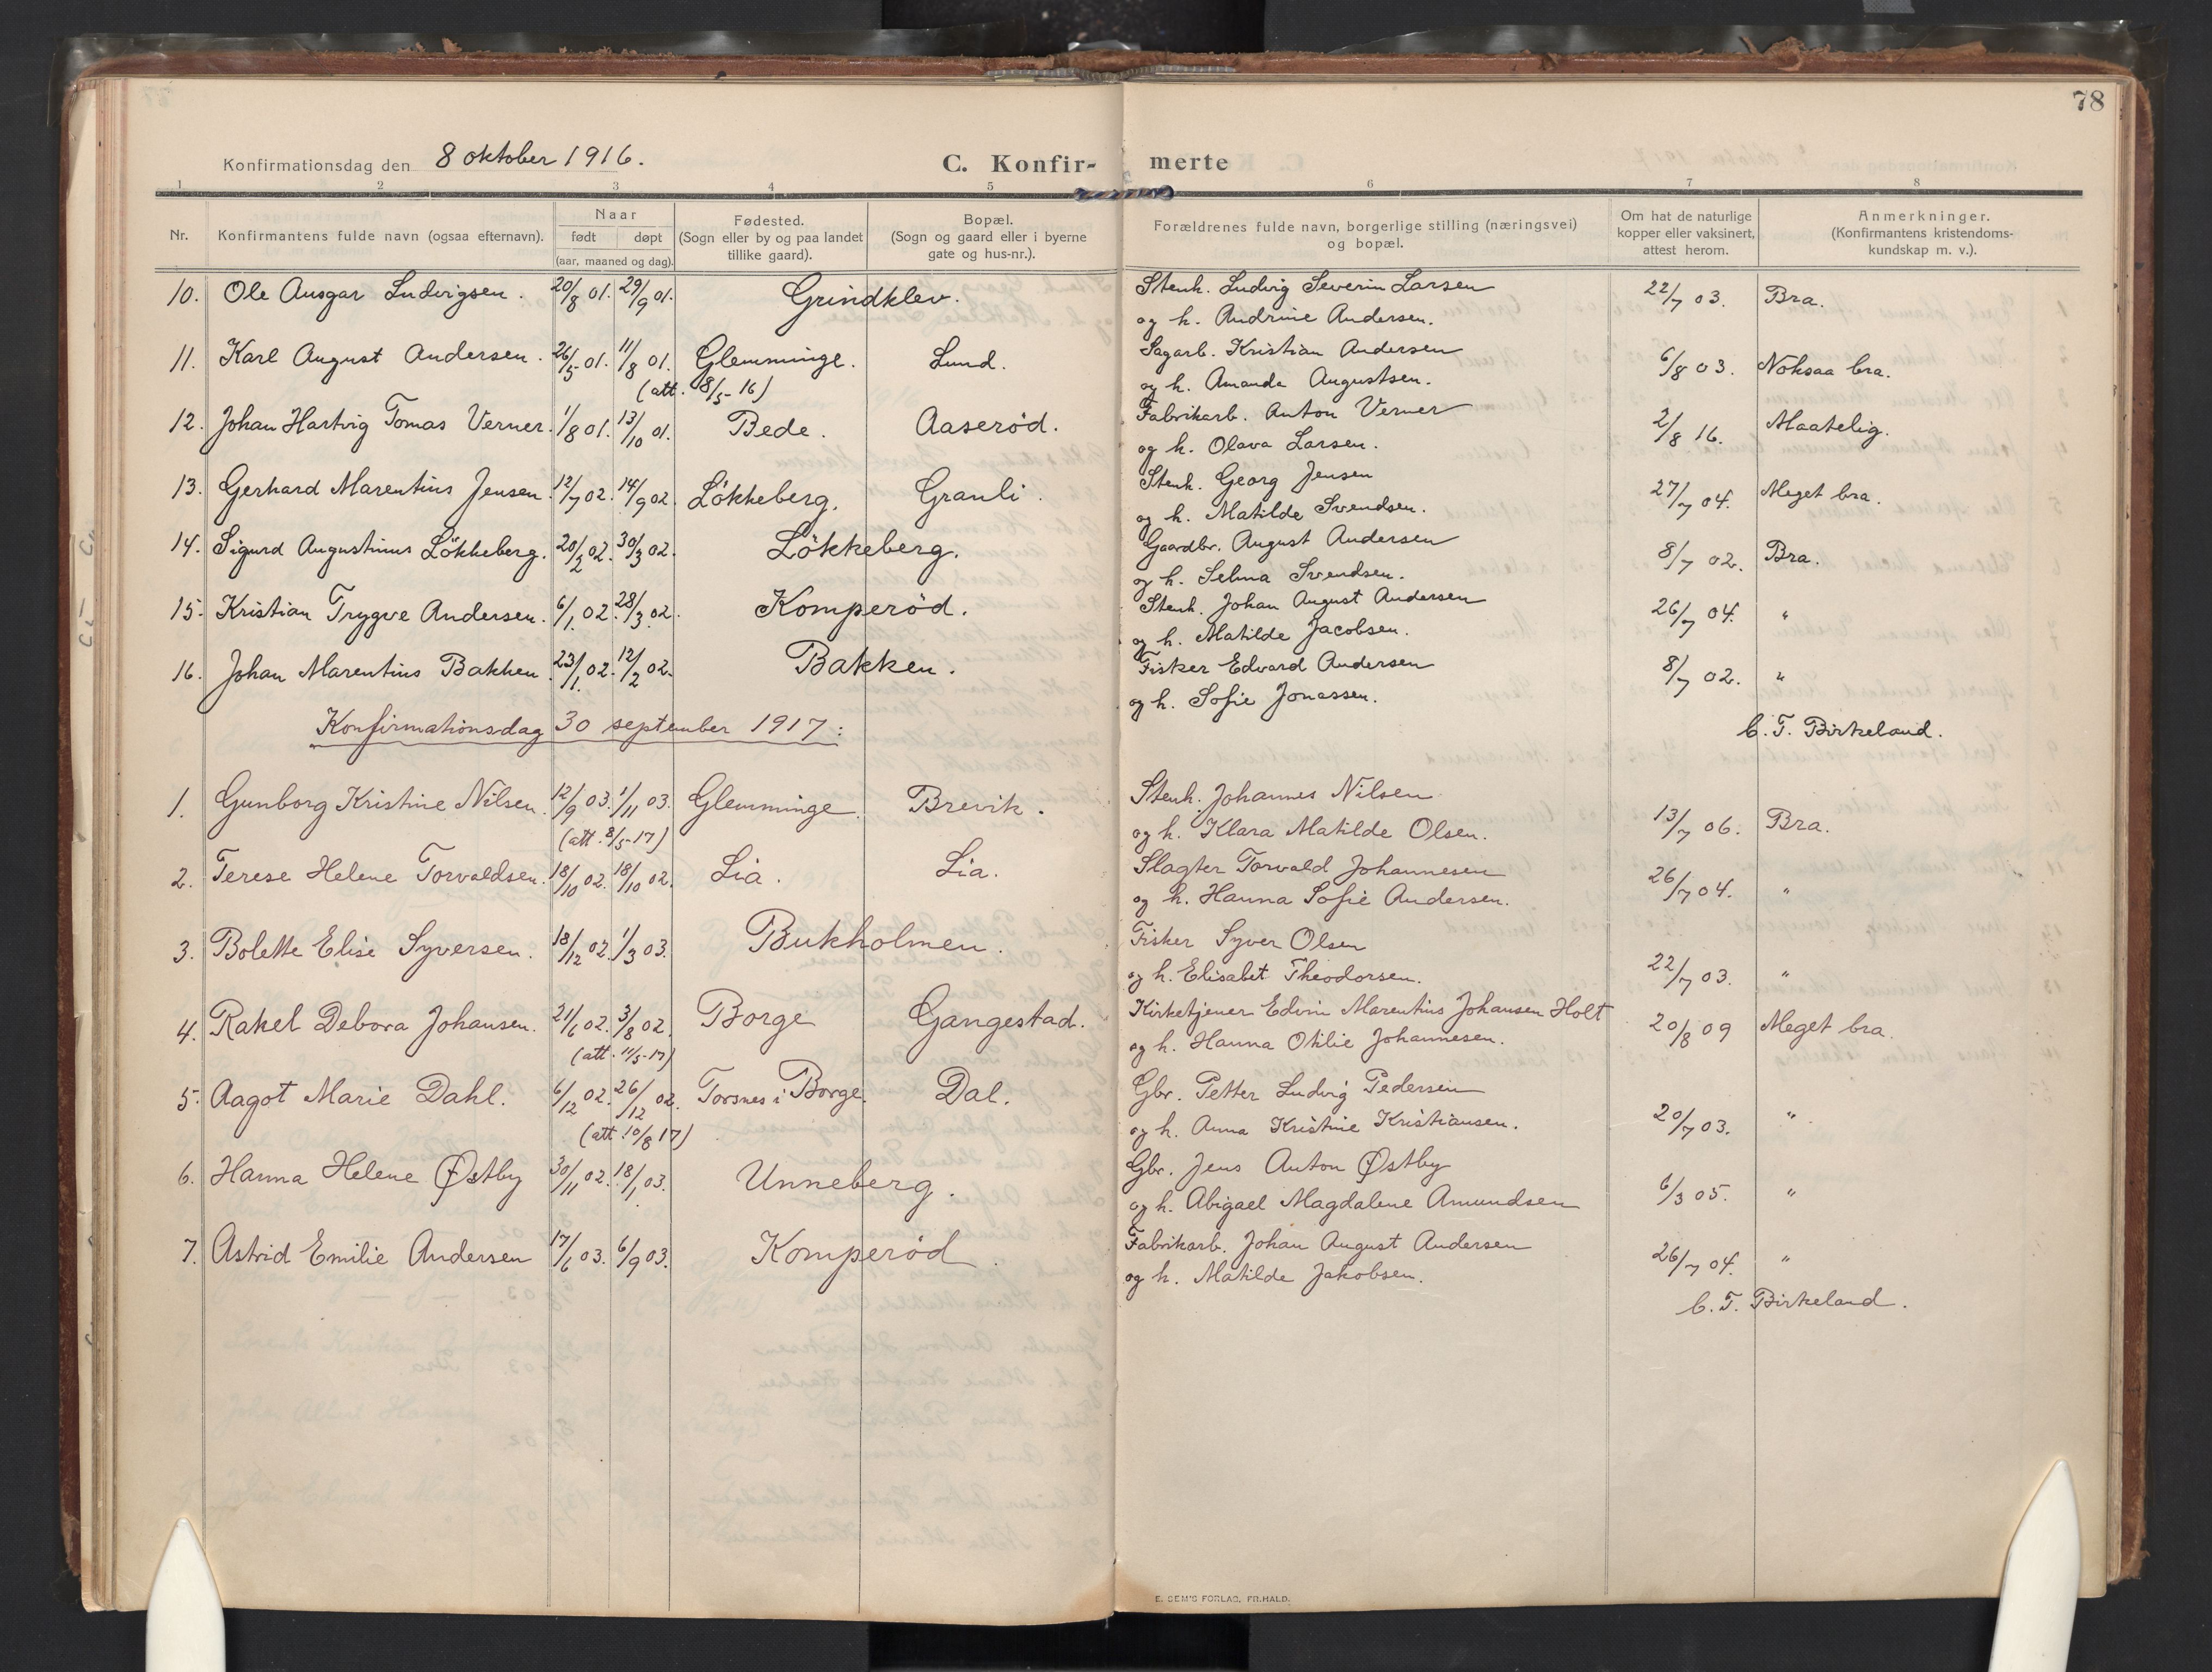 78
Konfirmationsdag den 8 oktober 1916. C. Konfir- merte
1 2 3 4 5 6 7 8
Nr. Konfirmantens fulde navn (ogsaa efternavn). Naar født døpt (aar, maaned og dag). Fødested. (Sogn eller by og paa landet tillike gaard). Bopæl. (Sogn og gaard eller i byerne gate og hus-nr.). Forældrenes fulde navn, borgerlige stilling (næringsvei) og bopæl. Om hat de naturlige kopper eller vaksinert, attest herom. Anmerkninger. (Konfirmantens kristendoms- kundskap m. v.).
10. Ole Ansgar Ludvigsen. 20/8 01. 29/9 01. Grindklev. Stenh. Ludvig Severin Larsen 22/7 03. Bra.
og h. Andrine Andersen.
11. Karl August Andersen. 26/5 01. 11/8 01. Glemminge. Lund. Sagarb. Kristian Andersen 6/8 03. Noksaa bra.
(att. 18/5-16) og h. Amanda Augustsen.
12. Johan Hartvig Tomas Verner. 1/8 01. 13/10 01. Bede. Aaserød. Fabrikarb. Anton Verner 2/8 16. Maatelig.
og h. Olava Larsen.
13. Gerhard Marentius Jensen. 12/7 02. 14/9 02. Lökkeberg. Granli. Stenh. Georg Jensen 27/7 04. Meget bra.
og h. Matilde Svendsen.
14. Sigurd Augustinus Lökkeberg. 20/2 02. 30/3 02. Lökkeberg. Gaardbr. August Andersen 8/7 02. Bra.
og h. Selma Svendsen.
15. Kristian Trygve Andersen. 6/1. 02. 28/3 02. Komperöd. Stenh. Johan August Andersen 26/7 04. "
og h. Matilde Jacobsen.
16. Johan Marentius Bakken. 23/1. 02. 12/2 02. Bakken. Fisker Edvard Andersen 8/7 02. "
og h. Sofie Jonassen.
Konfirmationsdag 30 september 1917: C. T. Birkeland.
1. Gunborg Kristine Nilsen. 12/9 03. 1/11 03. Glemminge. Brevik. Stenh. Johannes Nilsen 13/7 06. Bra.
(att. 8/5-17) og h. Klara Matilde Olsen.
2. Terese Helene Torvaldsen. 18/10 02. 18/10 02. Lia. Lia. Slagter Torvald Johannesen 26/7 04. "
og h. Hanna Sofie Andersen.
3. Bolette Elise Syversen. 18/12 02. 1/3 03. Bukholmen. Fisker Syver Olsen 22/7 03. "
og h. Elisabet Theodorsen.
4. Rakel Debora Johansen. 21/6 02. 3/8 02. Borge Gangestad. Kirketjener Edvin Marentius Johansen Holt 20/8 09 Meget bra.
(att. 11/5-17) og h. Hanna Otilie Johannesen.
5. Aagot Marie Dahl. 6/12 02. 26/12 02. Torsnes i Borge. Dal. Gbr. Petter Ludvig Pedersen 20/7 03. "
(att. 10/8 17) og h. Anna Kristine Kristiansen.
6. Hanna Helene Østby 30/11 02. 18/1. 03. Unneberg. Gbr. Jens Anton Østby 6/3 05. "
og h. Abigael Magdalene Amundsen
7. Astrid Emilie Andersen 17/6 03. 6/9 03. Komperöd. Fabrikarb. Johan August Andersen 26/7 04. "
og h. Matilde Jakobsen.
C. T. Birkeland.
E. SEM'S FORLAG, FR.HALD.